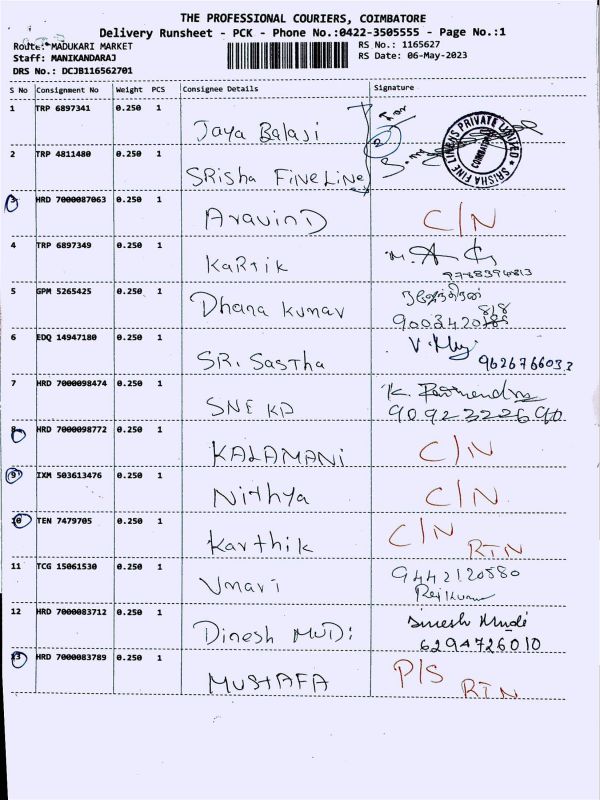 THE PROFESSIONAL COURIERS, COIMBATORE
Delivery Runsheet - PCK - Phone No.:0422-3505555 - Page No.:1
Route: MADUKARI MARKET
RS No.: 1165627
Staff: MANIKANDARAJ
RS Date: 06-May-2023
DRS No.: DCJB116562701
S No Consignment No Weight PCS Consignee Details Signature
1 TRP 6897341 0.250 1
Jaya Balaji
SRISHA FINE LINENS PRIVATE LIMITED
COIMBATORE
2 TRP 4811480 0.250 1
SRisha FINELINE
3 HRD 7000087063 0.250 1
AravinD C/N
4 TRP 6897349 0.250 1
KaRtik
5 GPM 5265425 0.250 1
Dhana kumar
6 EDQ 14947180 0.250 1
SRi Sastha
7 HRD 7000098474 0.250 1
SNE KD
9092322690
8 HRD 7000098772 0.250 1
KALAMANi C/N
9 IXM 503613476 0.250 1
Nithya C/N
10 TEN 7479705 0.250 1
Karthik C/N RTN
11 TCG 15061530 0.250 1
9442120580
Umari Rajkumar
12 HRD 7000083712 0.250 1
Dinesh MUDi
6294726010
13 HRD 7000083789 0.250 1
MUSTAFA P/S RTN